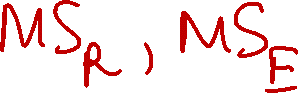 MS_R, MS_E